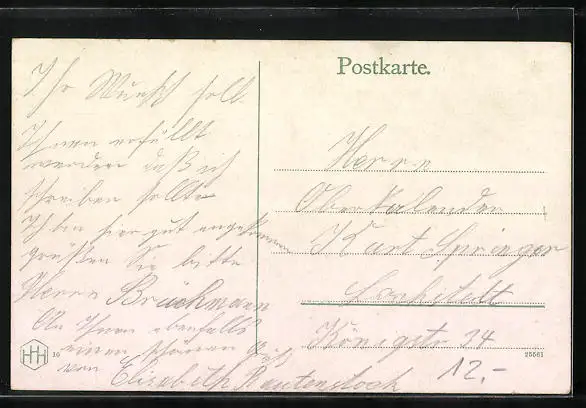 Postkarte.
Ihr Wunsch soll
Ihnen erfüllt
werden daß ich
schreiben sollte
Ich bin hier gut angekommen
grüßen Sie bitte
Herrn Brückmann
An Ihnen ebenfalls
einen schönen Gruß
von Elisabeth Rautenstock
Herrn
Kurt Springer
Königstr 34
12.-
HHH
16
25561